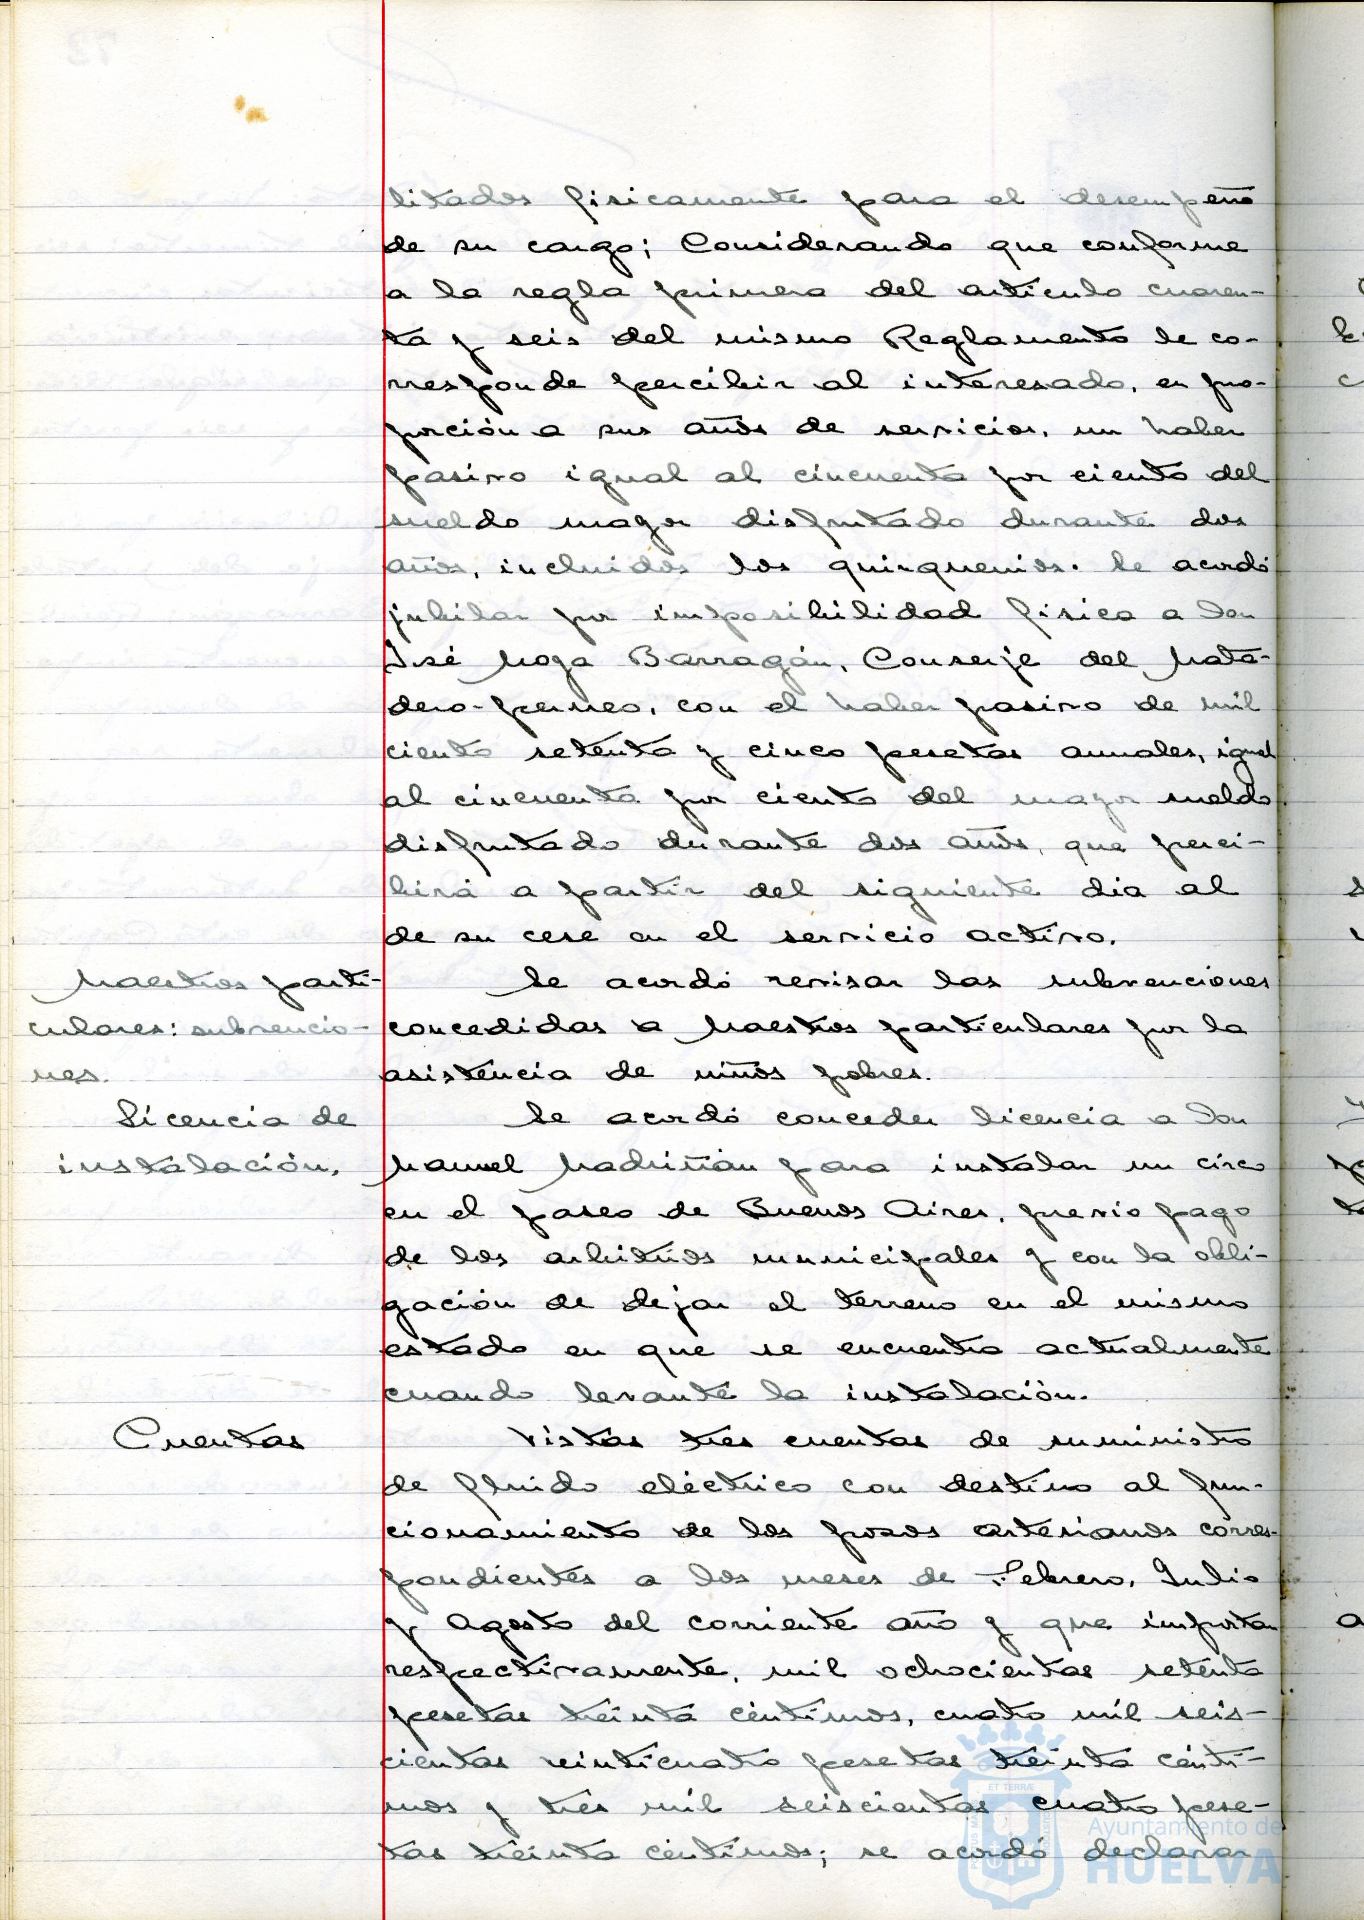 litados fisicamente para el desempeño
de su cargo; Considerando que conforme
a la regla primera del articulo cuaren-
ta y seis del mismo Reglamento le co-
rresponde percibir al interesado, en pro-
porción a sus años de servicios, un haber
pasivo igual al cincuenta por ciento del
sueldo mayor disfrutado durante dos
años, incluidos los quinquenios. Se acordó
jubilar por imposibilidad fisica a Don
José Moya Barragán, Conserje del Mata-
dero-perneo, con el haber pasivo de mil
ciento setenta y cinco pesetas anuales, igual
al cincuenta por ciento del mayor sueldo
disfrutado durante dos años, que perci-
birá a partir del siguiente dia al
de su cese en el servicio activo.
Maestros parti-
culares: subvencio-
nes.
Se acordó revisar las subvenciones
concedidas a Maestros particulares por la
asistencia de niños pobres.
Licencia de
instalación.
Se acordó conceder licencia a Don
Manuel Madriñan para instalar un circo
en el paseo de Buenos Aires, previo pago
de los arbitrios municipales y con la obli-
gación de dejar el terreno en el mismo
estado en que se encuentra actualmente
cuando levante la instalación.
Cuentas
Vistas tres cuentas de suministro
de fluido eléctrico con destino al fun-
cionamiento de los pozos artesianos corres-
pondientes a los meses de Febrero, Julio
y Agosto del corriente año y que importan
respectivamente, mil ochocientas setenta
pesetas treinta céntimos, cuatro mil seis-
cientas veinticuatro pesetas treinta cénti-
mos y tres mil seiscientas cuatro pese-
tas treinta céntimos; se acordó declarar
Ayuntamiento de
HUELVA